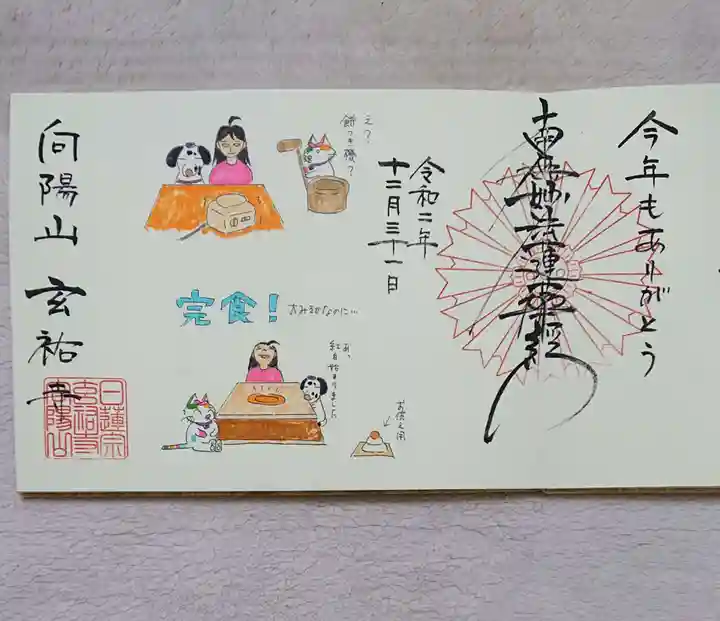 今年もありがとう
南無妙法蓮華経
令和二年
十二月三十一日
え?
餅つき機?
完食!
大みそかなのに…
あ、
紅白始まりました
お供え用
向陽山 玄祐寺
日蓮宗
玄祐寺
向陽山